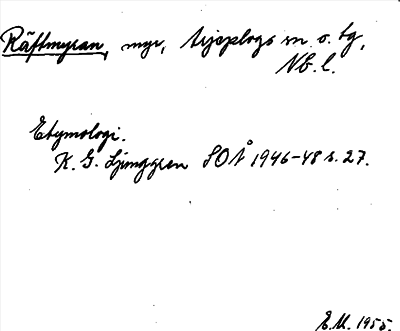 Räftmyran, myr, Arjeplogs sn o. tg,
Nb. l.
Etymologi.
K. G. Ljunggren SOÅ 1946-48 s. 27.
E.U. 1955.